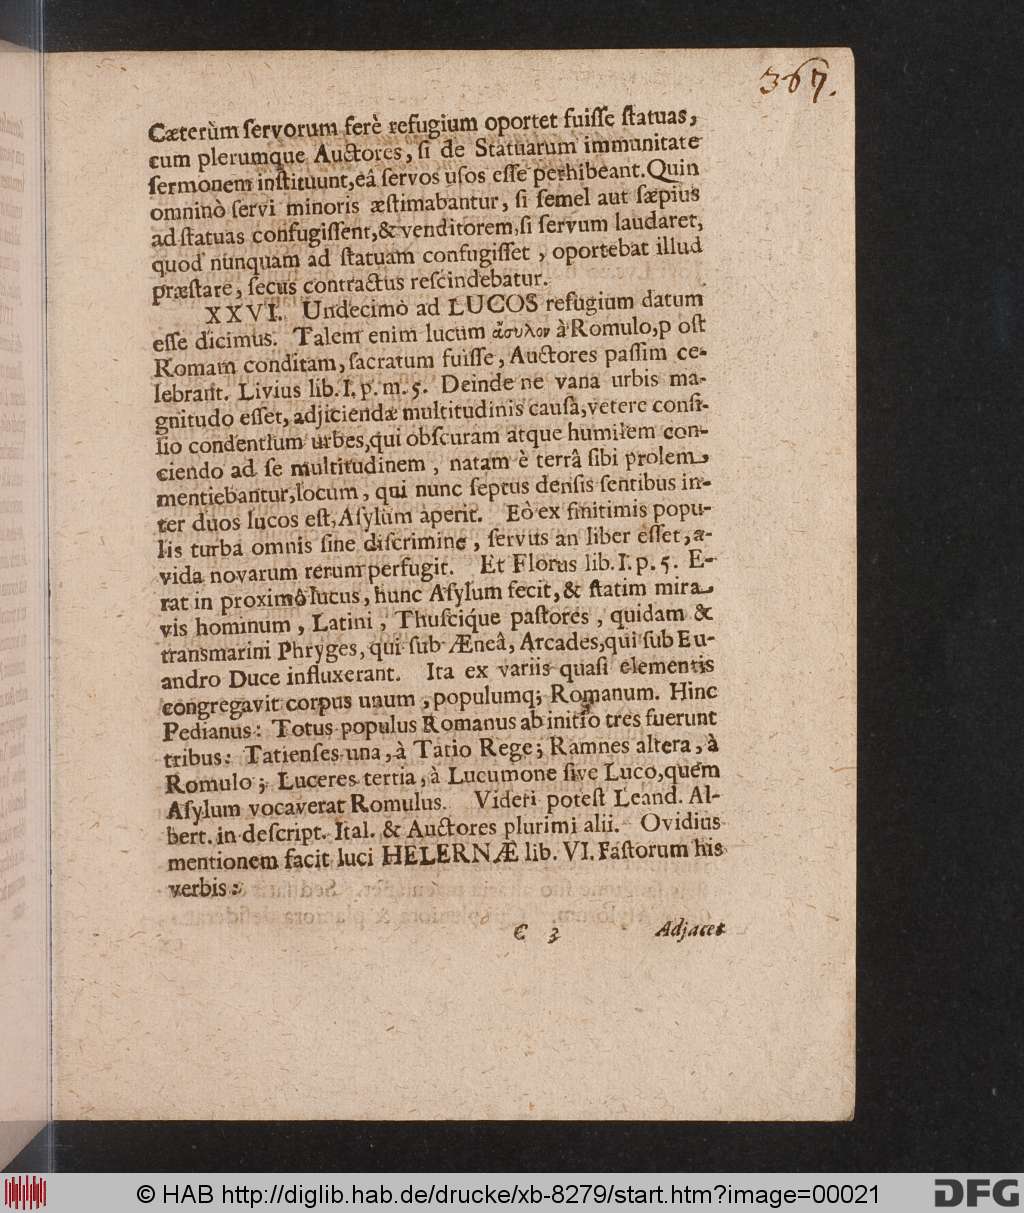 367.
Cæterùm ſervorum ferè refugium oportet fuiſſe ſtatuas,
cum plerumque Auctores, ſi de Statuarum immunitate
ſermonem inſtituunt, eâ ſervos uſos eſſe perhibeant. Quin
omninò ſervi minoris æſtimabantur, ſi ſemel aut ſæpius
ad ſtatuas confugiſſent, & venditorem, ſi ſervum laudaret,
quod nunquam ad ſtatuam confugiſſet, oportebat illud
præſtare, ſecus contractus reſcindebatur.
XXVI. Undecimò ad LUCOS refugium datum
eſſe dicimus. Talem enim lucum ἄσυλον à Romulo, p oſt
Romam conditam, ſacratum fuiſſe, Auctores paſſim ce-
lebrant. Livius lib. I. p. m. 5. Deinde ne vana urbis ma-
gnitudo eſſet, adjiciendæ multitudinis cauſâ, vetere conſi-
lio condentium urbes, qui obſcuram atque humilem con-
ciendo ad ſe multitudinem, natam è terrâ ſibi prolem
mentiebantur, locum, qui nunc ſeptus denſis ſentibus in-
ter duos lucos eſt, Aſylum aperit. Eò ex finitimis popu-
lis turba omnis ſine diſcrimine, ſervus an liber eſſet, a-
vida novarum rerum perfugit. Et Florus lib. I. p. 5. E-
rat in proximô lucus, hunc Aſylum fecit, & ſtatim mira
vis hominum, Latini, Thuſciq́ue paſtores, quidam &
transmarini Phryges, qui ſub Æneâ, Arcades, qui ſub Eu-
andro Duce influxerant. Ita ex variis quaſi elementis
congregavit corpus unum, populumq; Romanum. Hinc
Pedianus: Totus populus Romanus ab initio tres fuerunt
tribus: Tatienſes una, à Tatio Rege; Ramnes altera, à
Romulo; Luceres tertia, à Lucumone ſive Luco, quem
Aſylum vocaverat Romulus. Videri poteſt Leand. Al-
bert. in deſcript. Ital. & Auctores plurimi alii. Ovidius
mentionem facit luci HELERNÆ lib. VI. Faſtorum his
verbis:
C 3 Adjacet
© HAB http://diglib.hab.de/drucke/xb-8279/start.htm?image=00021
DFG